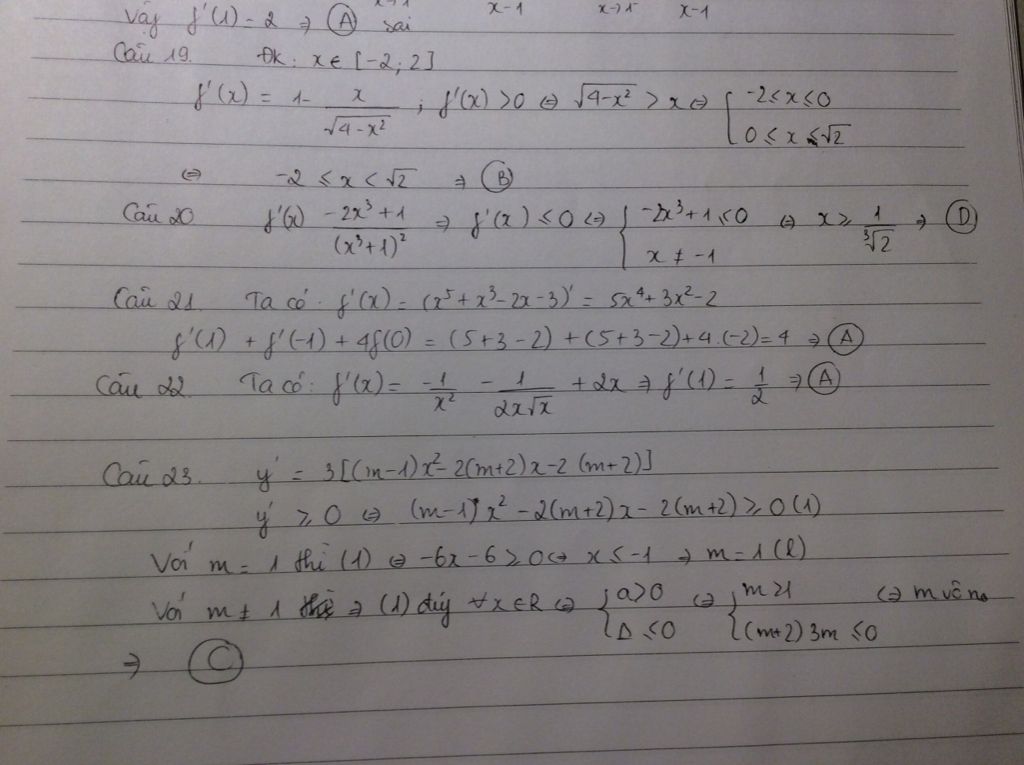 x→1 x-1 x→1⁻ x-1
Vậy f'(1) = 2 ⇒ (A) sai
Câu 19. Đk: x ∈ [-2; 2]
f'(x) = 1 - x/√(4-x²) ; f'(x) > 0 ⇔ √(4-x²) > x ⇔ { -2 ≤ x ≤ 0
0 ≤ x < √2
⇔ -2 ≤ x < √2 ⇒ (B)
Câu 20 f'(x) (-2x³+1)/(x³+1)² ⇒ f'(x) ≤ 0 ⇔ { -2x³+1 ≤ 0 ⇔ x ≥ 1/∛2 ⇒ (D)
x ≠ -1
Câu 21. Ta có: f'(x) = (x⁵+x³-2x-3)' = 5x⁴+3x²-2
f'(1) + f'(-1) + 4f(0) = (5+3-2) + (5+3-2)+4.(-2)=4 ⇒ (A)
Câu 22. Ta có: f'(x) = -1/x² - 1/(2x√x) + 2x ⇒ f'(1) = 1/2 ⇒ (A)
Câu 23. y' = 3[(m-1)x²-2(m+2)x-2(m+2)]
y' ≥ 0 ⇔ (m-1)x² - 2(m+2)x - 2(m+2) ≥ 0 (1)
Với m = 1 thì (1) ⇔ -6x-6 ≥ 0 ⇔ x ≤ -1 ⇒ m=1 (l)
Với m ≠ 1 ⇒ (1) đúg ∀x∈R ⇔ { a>0 ⇔ { m>1 ⇔ m vô no
Δ ≤ 0 (m+2) 3m ≤ 0
⇒ (C)